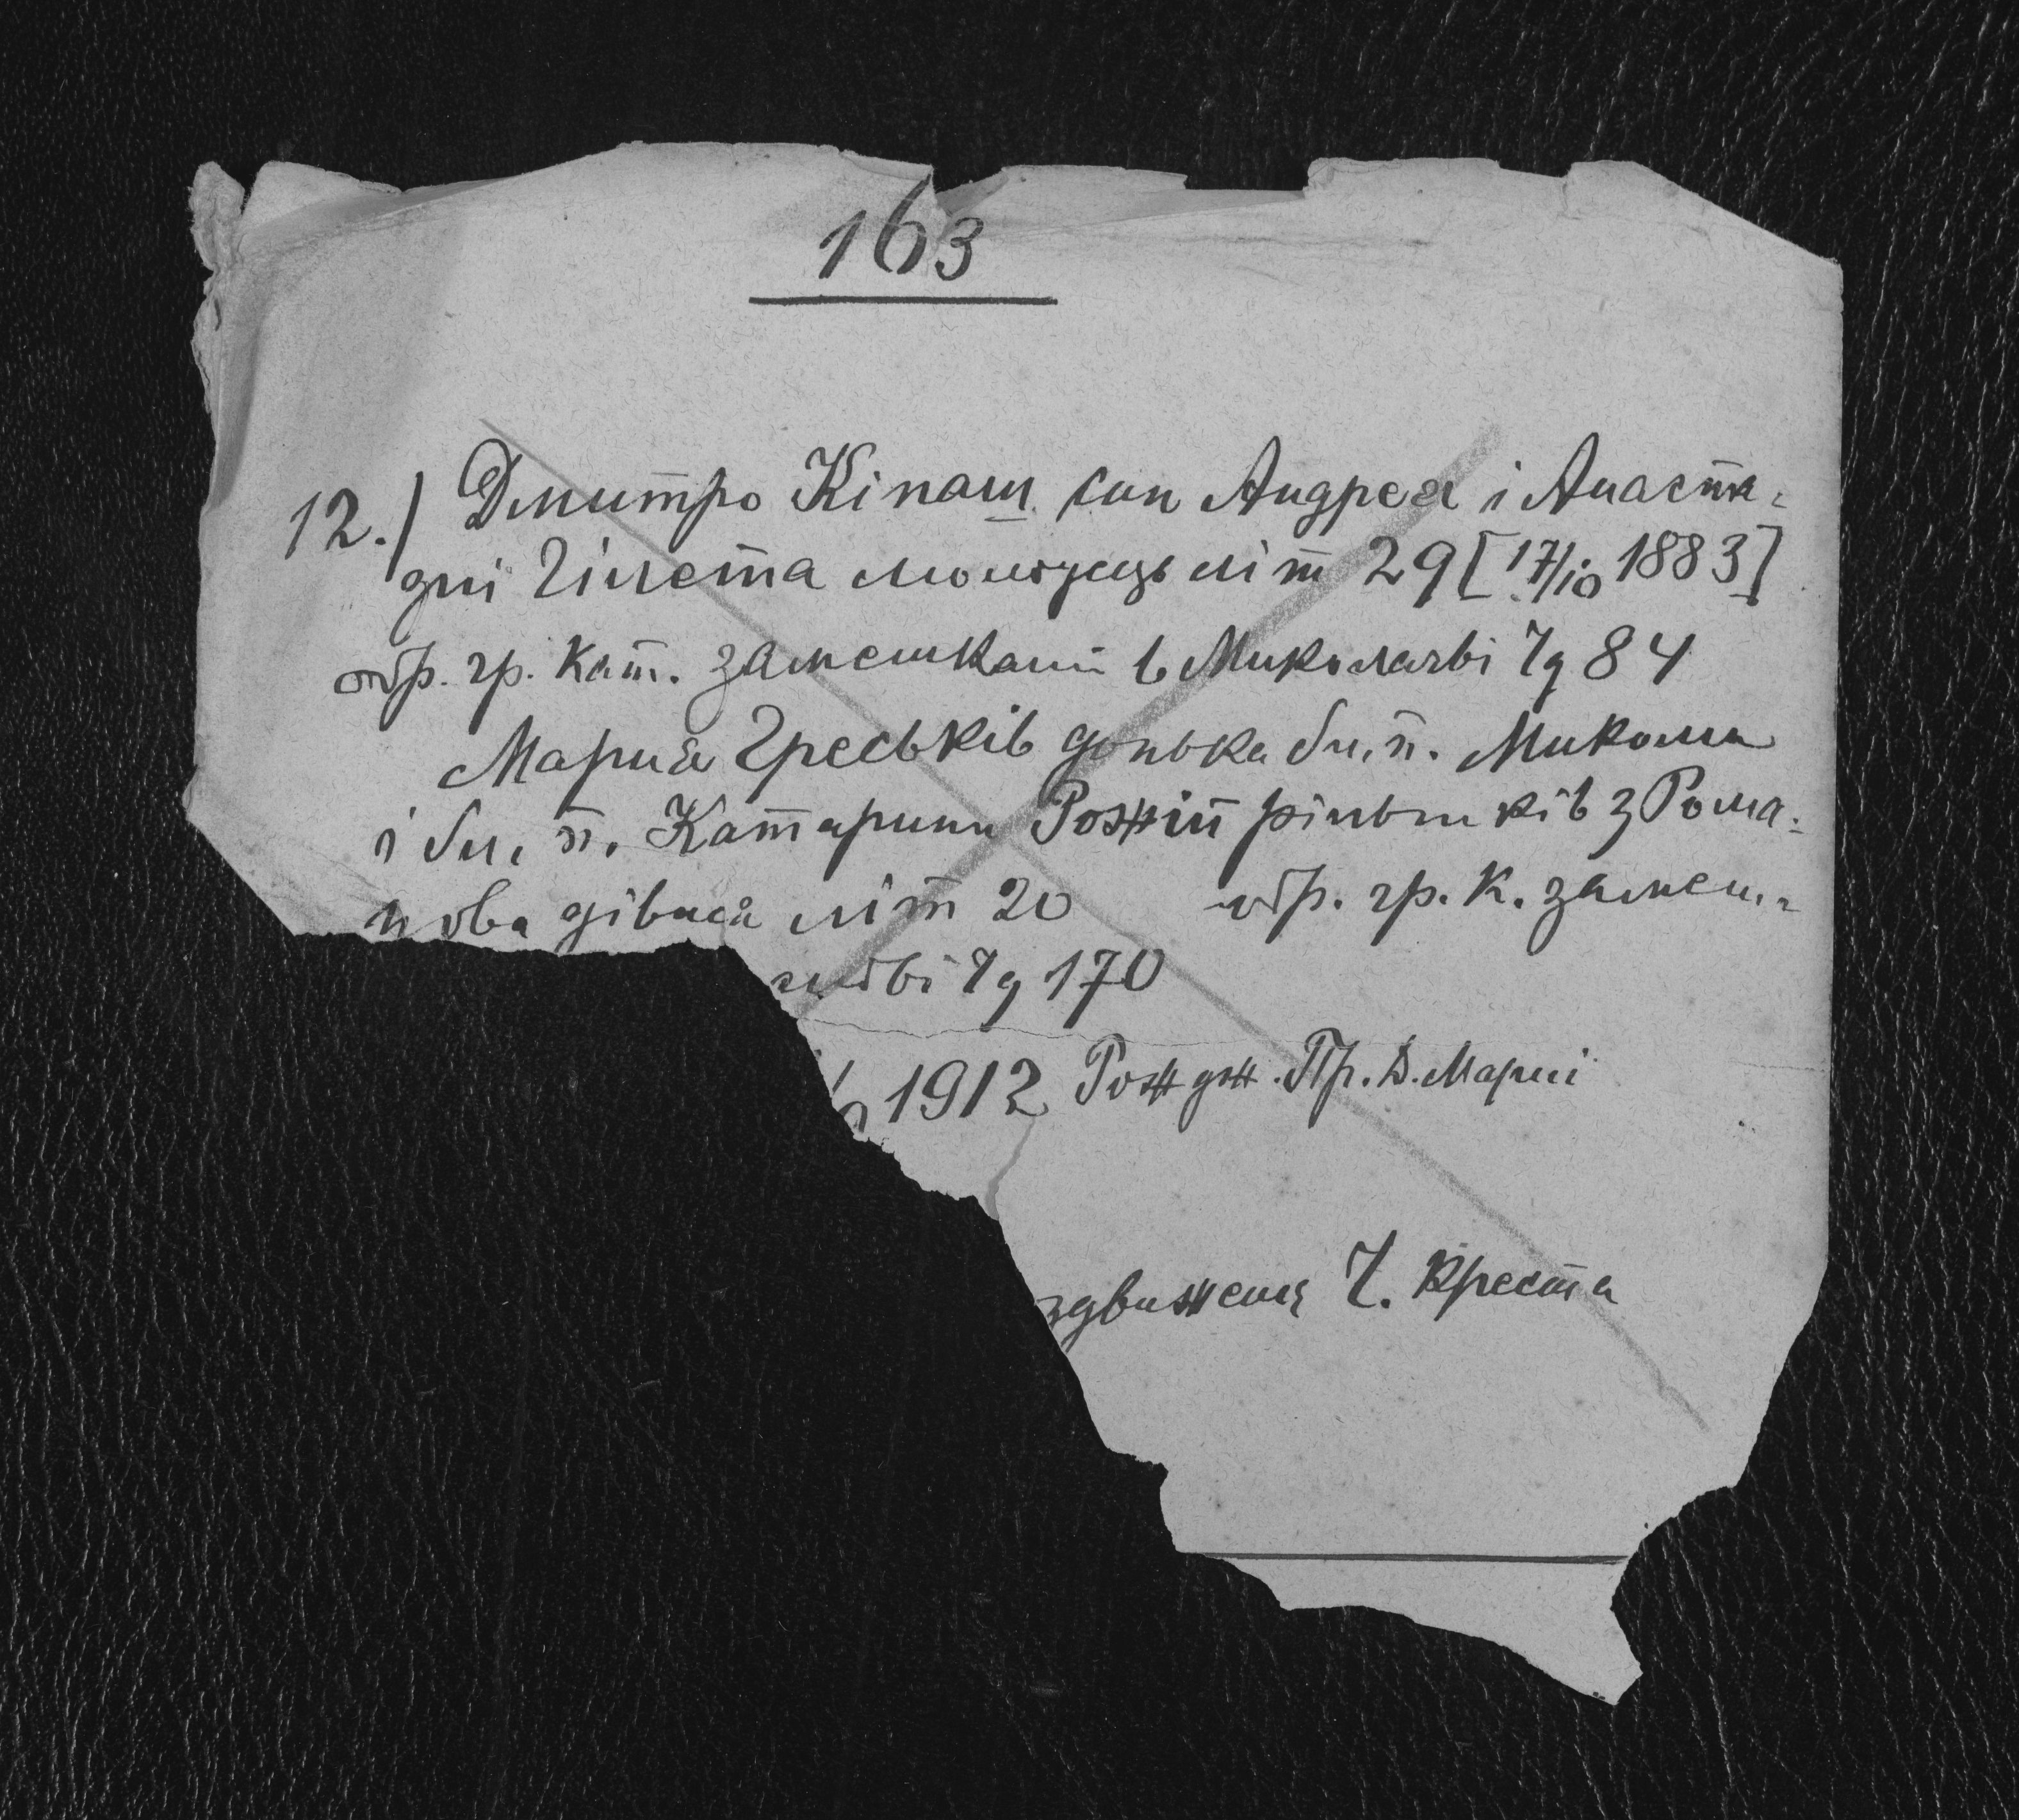 163
12.) Дмитро Кіпаш син Андрея і Анаста-
зиї Гілета молодець літ 29 [17/10 1883]
обр. гр. кат. замешкали в Миколаєві Чд 84
Мария Греськів донька бл. п. Миколи
і бл. п. Катарини Рожій рільників з Рома-
нова дівиця літ 20 обр. гр. к. замеш-
Чд 170
1912 Рожд. Пр. Д. Мариї
здвиженя Ч. Креста